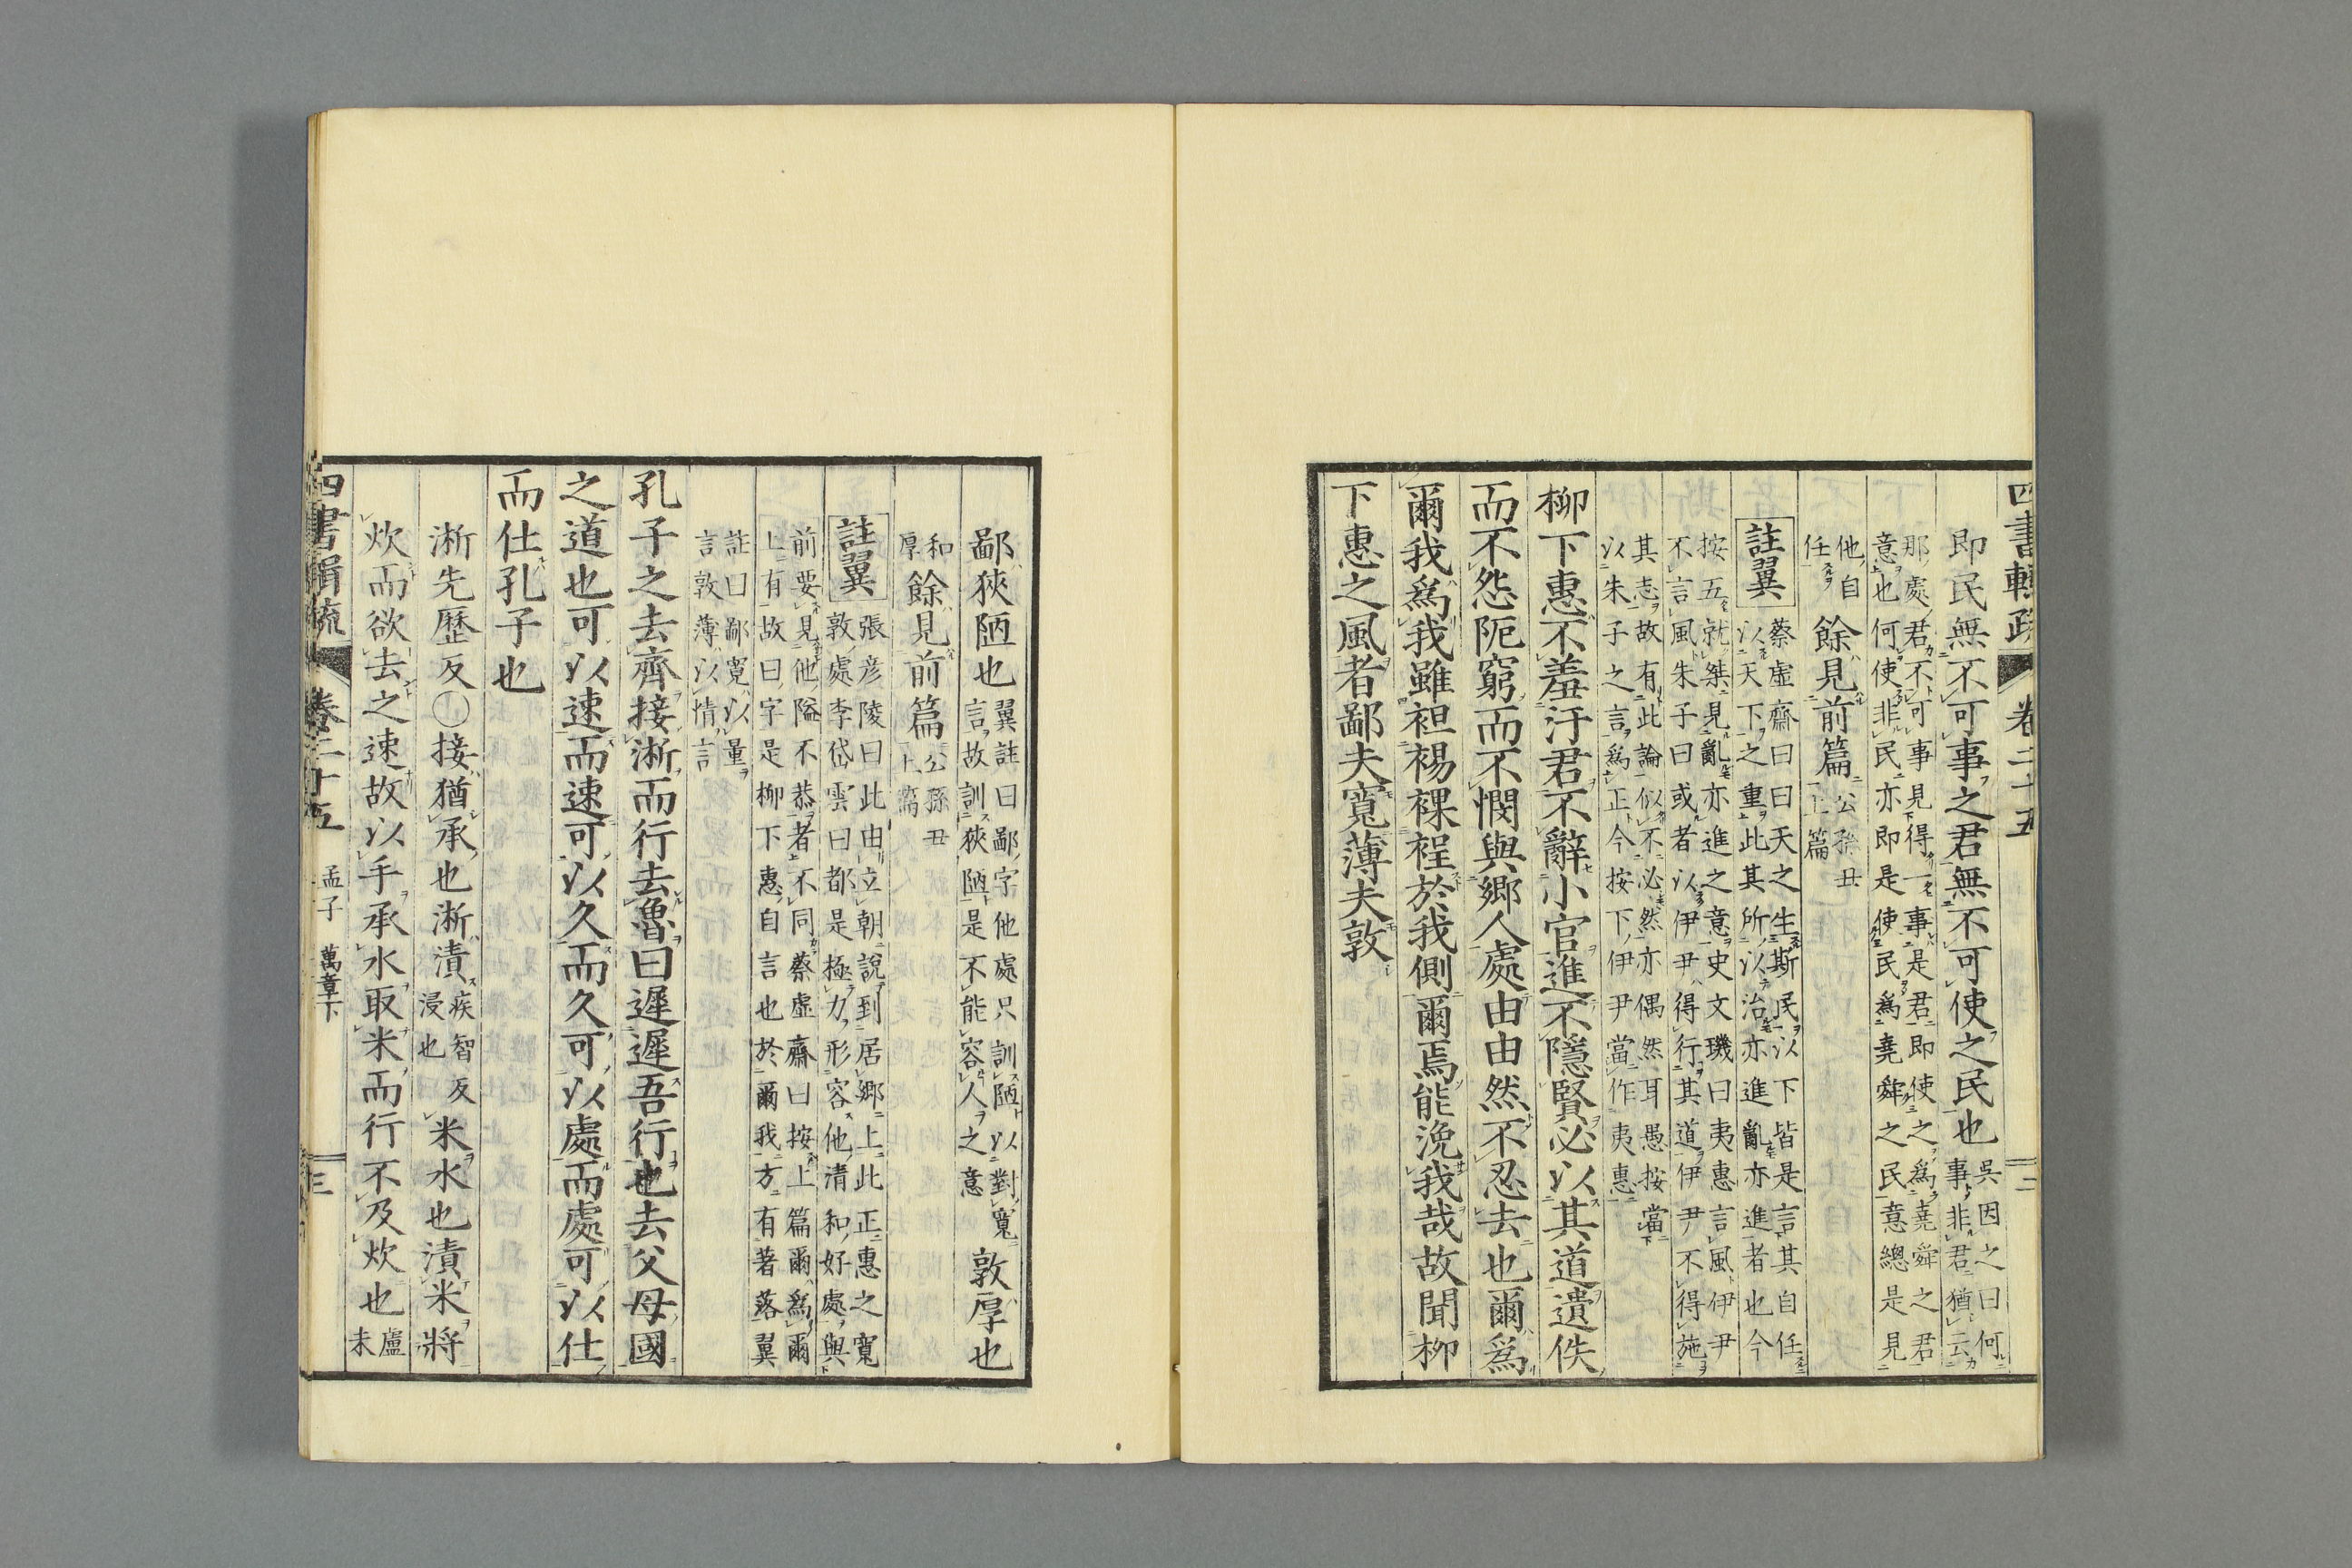 四書輯疏 卷二十五 二
即民無不可事之君無不可使之民也
吳因之曰何
事非君猶云
那處君不可事見得一事是君即使之為堯舜之君
意也何使非民亦即是使民爲堯舜之民意總是見
他自
任
餘見前篇
公孫丑
上篇
註翼
蔡虛齋曰曰天之生斯民以下皆是言其自任
以天下之重此其所以治亦進亂亦進者也今
按五就桀見亂亦進之意史文璣曰夷惠言風伊尹
不言風朱子曰或者以伊尹得行其道伊尹不得施
其志故有此論似不必然亦偶然耳愚按當
以朱子之言爲正今按下伊尹當作夷惠
柳下惠不羞汙君不辭小官進不隱賢必以其道遺佚
而不怨阨窮而不憫與鄉人處由由然不忍去也爾爲
爾我爲我雖袒裼裸裎於我側爾焉能浼我哉故聞柳
下惠之風者鄙夫寬薄夫敦
鄙狹陋也
翼註曰鄙字他處只訓陋以對寬
言故訓狹陋是不能容人之意
敦厚也
和
厚
餘見前篇
公孫丑
上篇
註翼
張彦陵曰此由立朝說到居鄉上此正惠之寬
敦處李岱雲曰都是極力形容他清和好處與
前要見他隘不恭者不同蔡虛齋曰按上篇爾爲爾
上有故曰字是柳下惠自言也於爾我方有著落翼
註曰鄙寬以量
言敦薄以情言
孔子之去齊接淅而行去魯曰遲遲吾行也去父母國
之道也可以速而速可以久而久可以處而處可以仕
而仕孔子也
淅先歷反〇接猶承也淅漬
疾智反
浸也
米水也漬米將
炊而欲去之速故以手承水取米而行不及炊也
盧
未
四書輯疏 卷二十五 孟子 萬章下 三